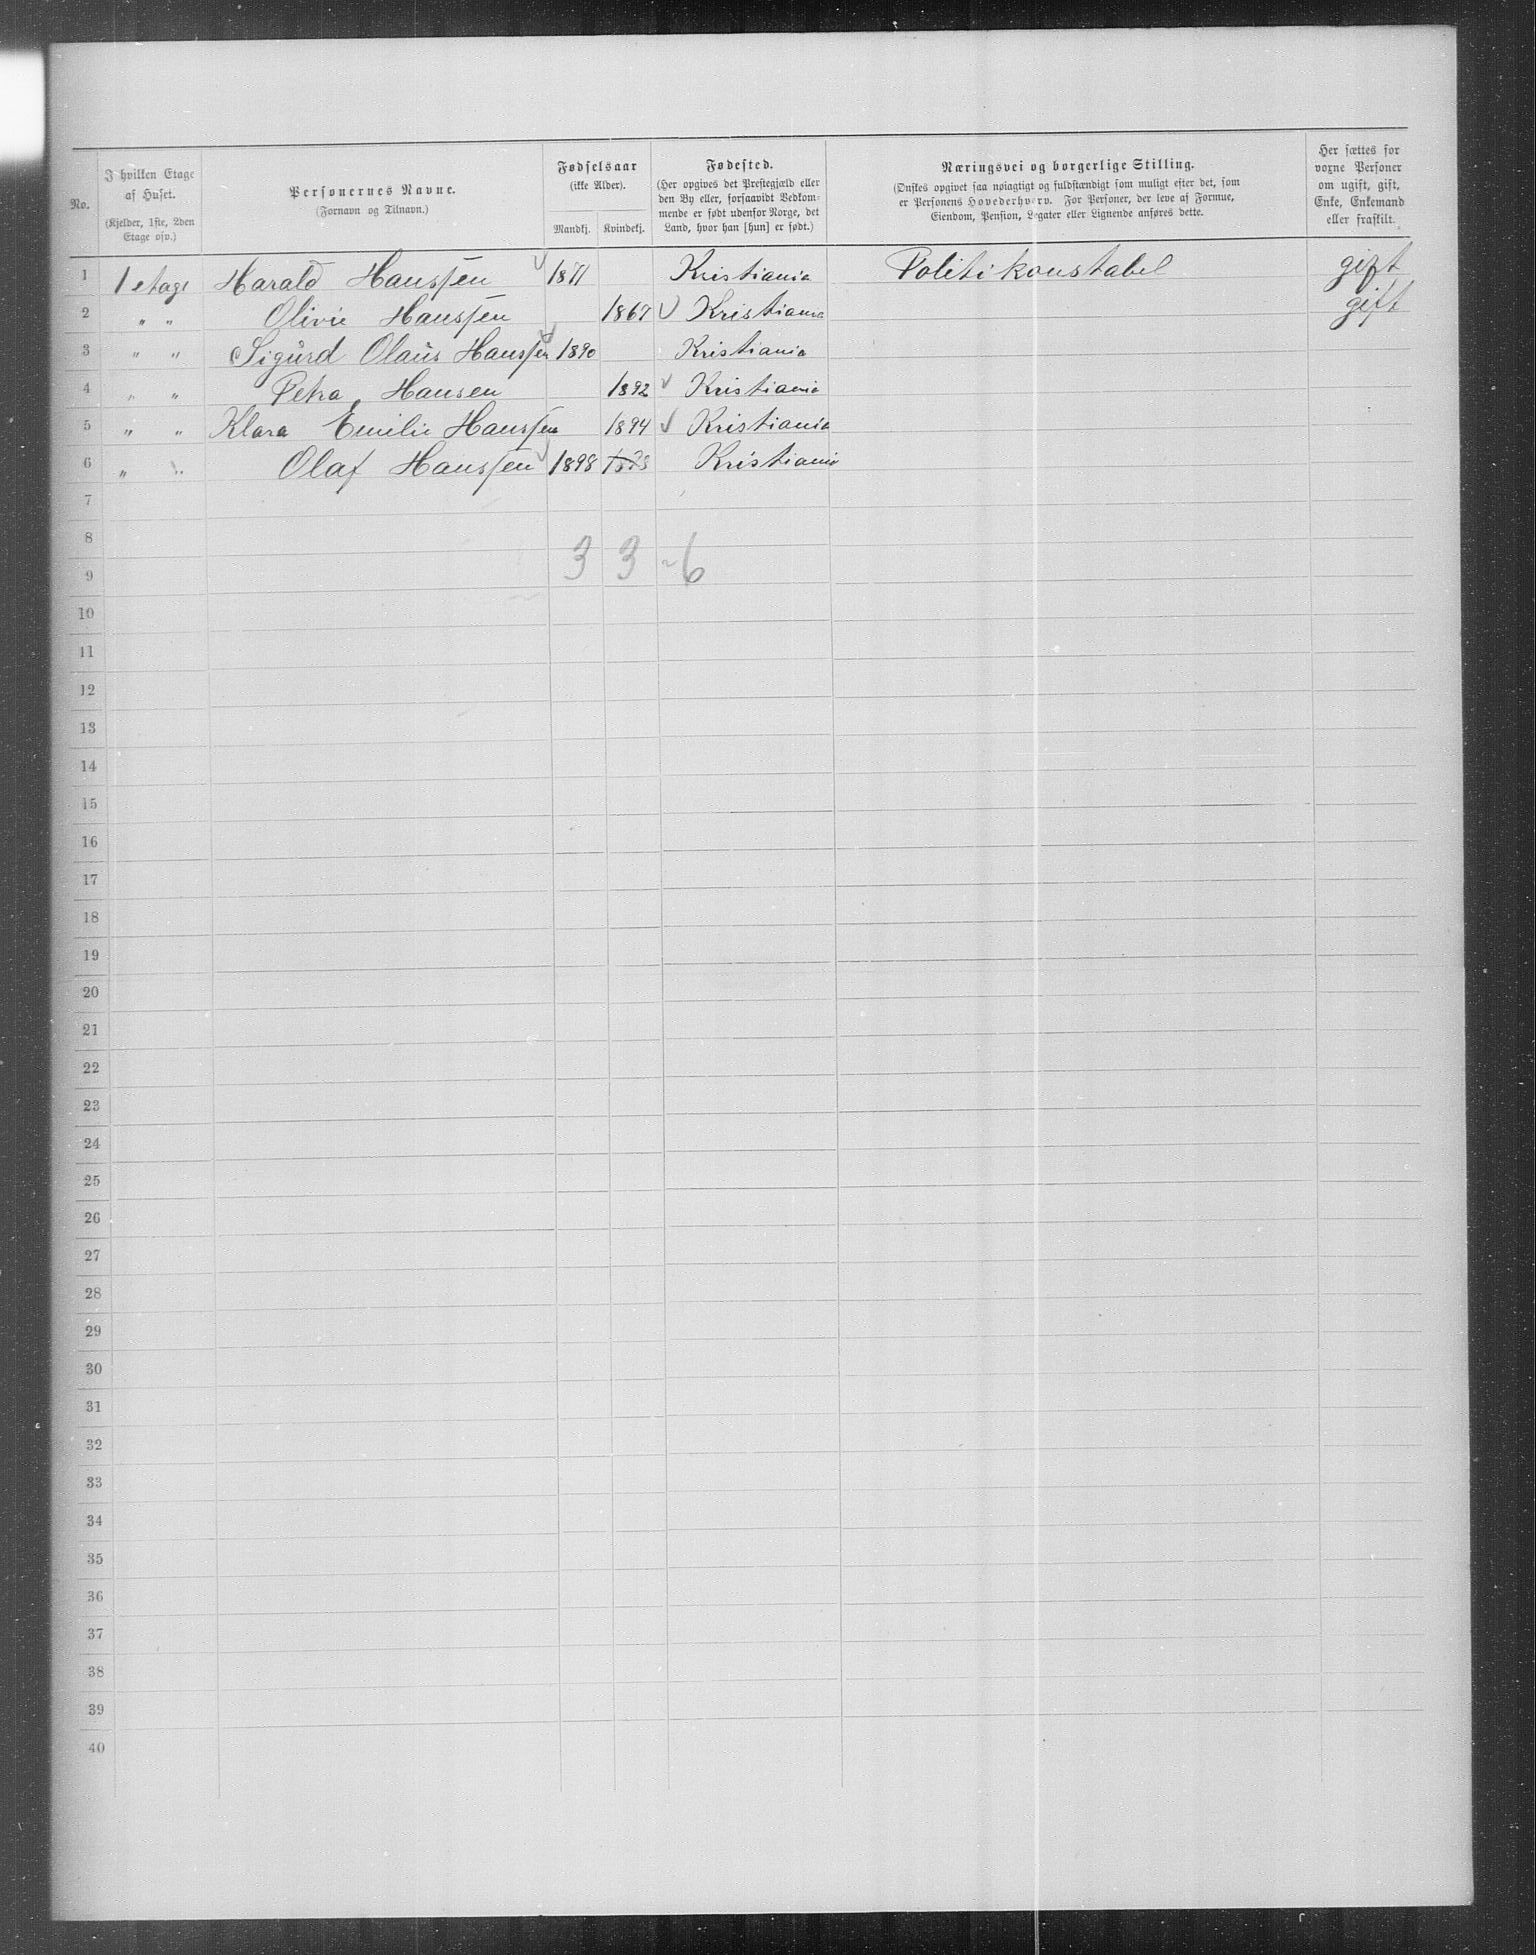 No.
I hvilken Etage af Huset.
(Kjelder, 1ste, 2den Etage osv.)
Personernes Navne.
(Fornavn og Tilnavn.)
Fødselsaar
(ikke Alder).
Mandkj. Kvindekj.
Fødested.
(Her opgives det Prestegjæld eller
den By eller, forsaavidt Vedkom-
mende er født udenfor Norge, det
Land, hvor han [hun] er født.)
Næringsvei og borgerlige Stilling.
(Ønskes opgivet saa nøiagtigt og fuldstændigt som muligt efter det, som
er Personens Hovederhverv. For Personer, der leve af Formue,
Eiendom, Pension, Legater eller Lignende anføres dette.
Her sættes for
voxne Personer
om ugift, gift,
Enke, Enkemand
eller fraskilt.
1 1 etage Harald Hanssen 1871 Kristiania Politikonstabel gift
2 " " Olivie Hanssen 1867 Kristiania gift
3 " " Sigurd Olaus Hanssen 1890 Kristiania
4 " " Petra Hansen 1892 Kristiania
5 " " Klara Emilie Hanssen 1894 Kristiania
6 " " Olaf Hanssen 1898 Kristiania
7
8
3 3 - 6
9
10
11
12
13
14
15
16
17
18
19
20
21
22
23
24
25
26
27
28
29
30
31
32
33
34
35
36
37
38
39
40